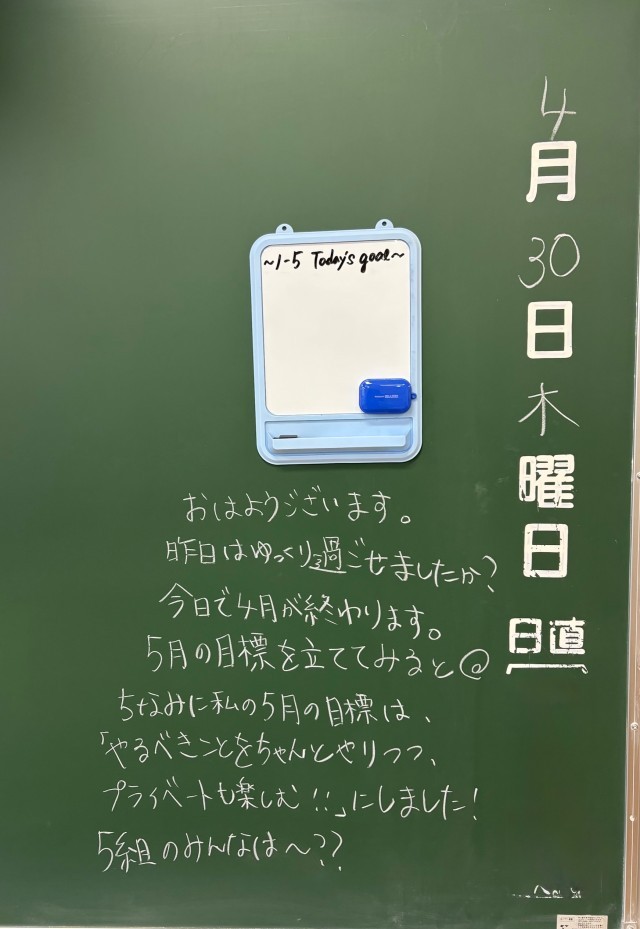 4月30日木曜日
日直
~1-5 Today's goal~
おはようございます。
昨日はゆっくり過ごせましたか?
今日で4月が終わります。
5月の目標を立ててみると@
ちなみに私の5月の目標は、
「やるべきことをちゃんとやりつつ、
プライベートも楽しむ!!」にしました!
5組のみんなは~??